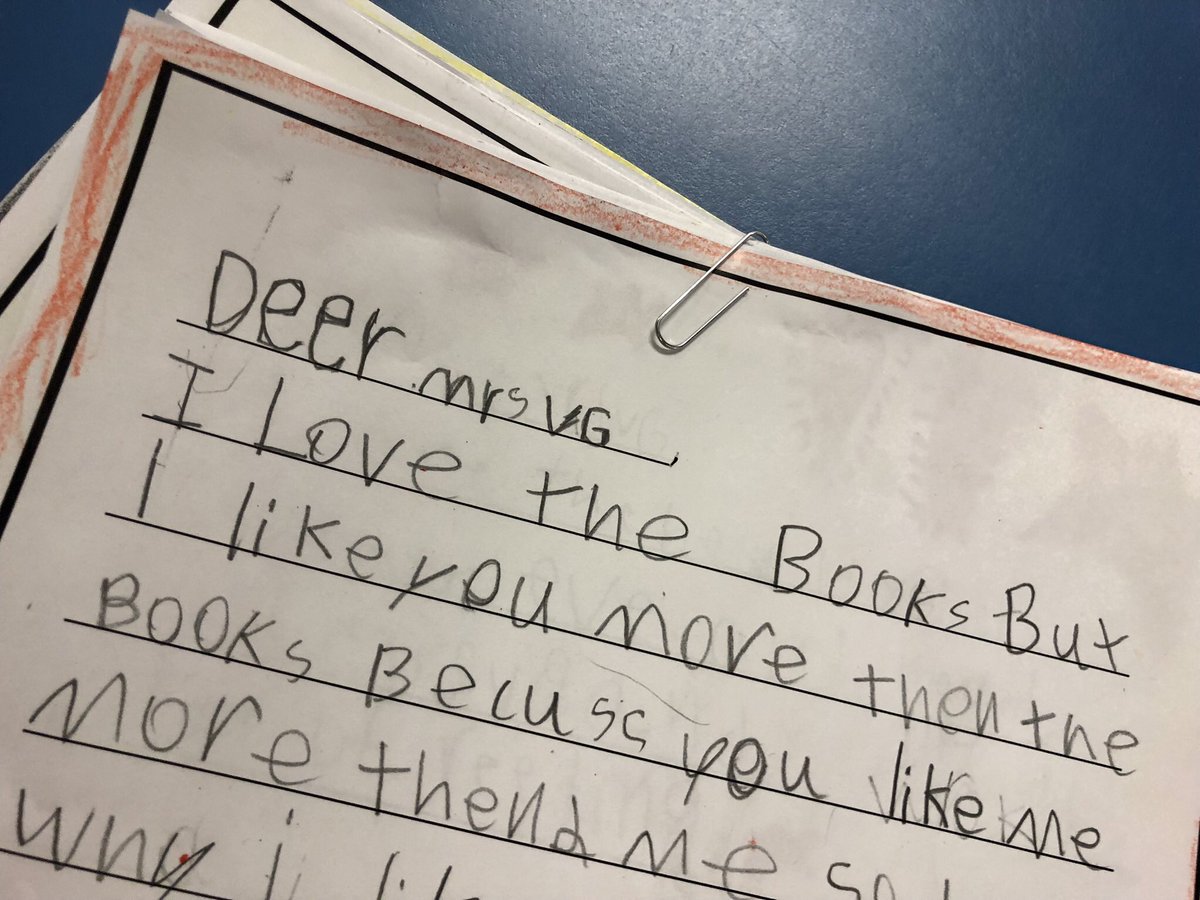 Deer mrs VG
I Love the Books But
I like you more then the
Books Becuss you like me
more thend me so
why i